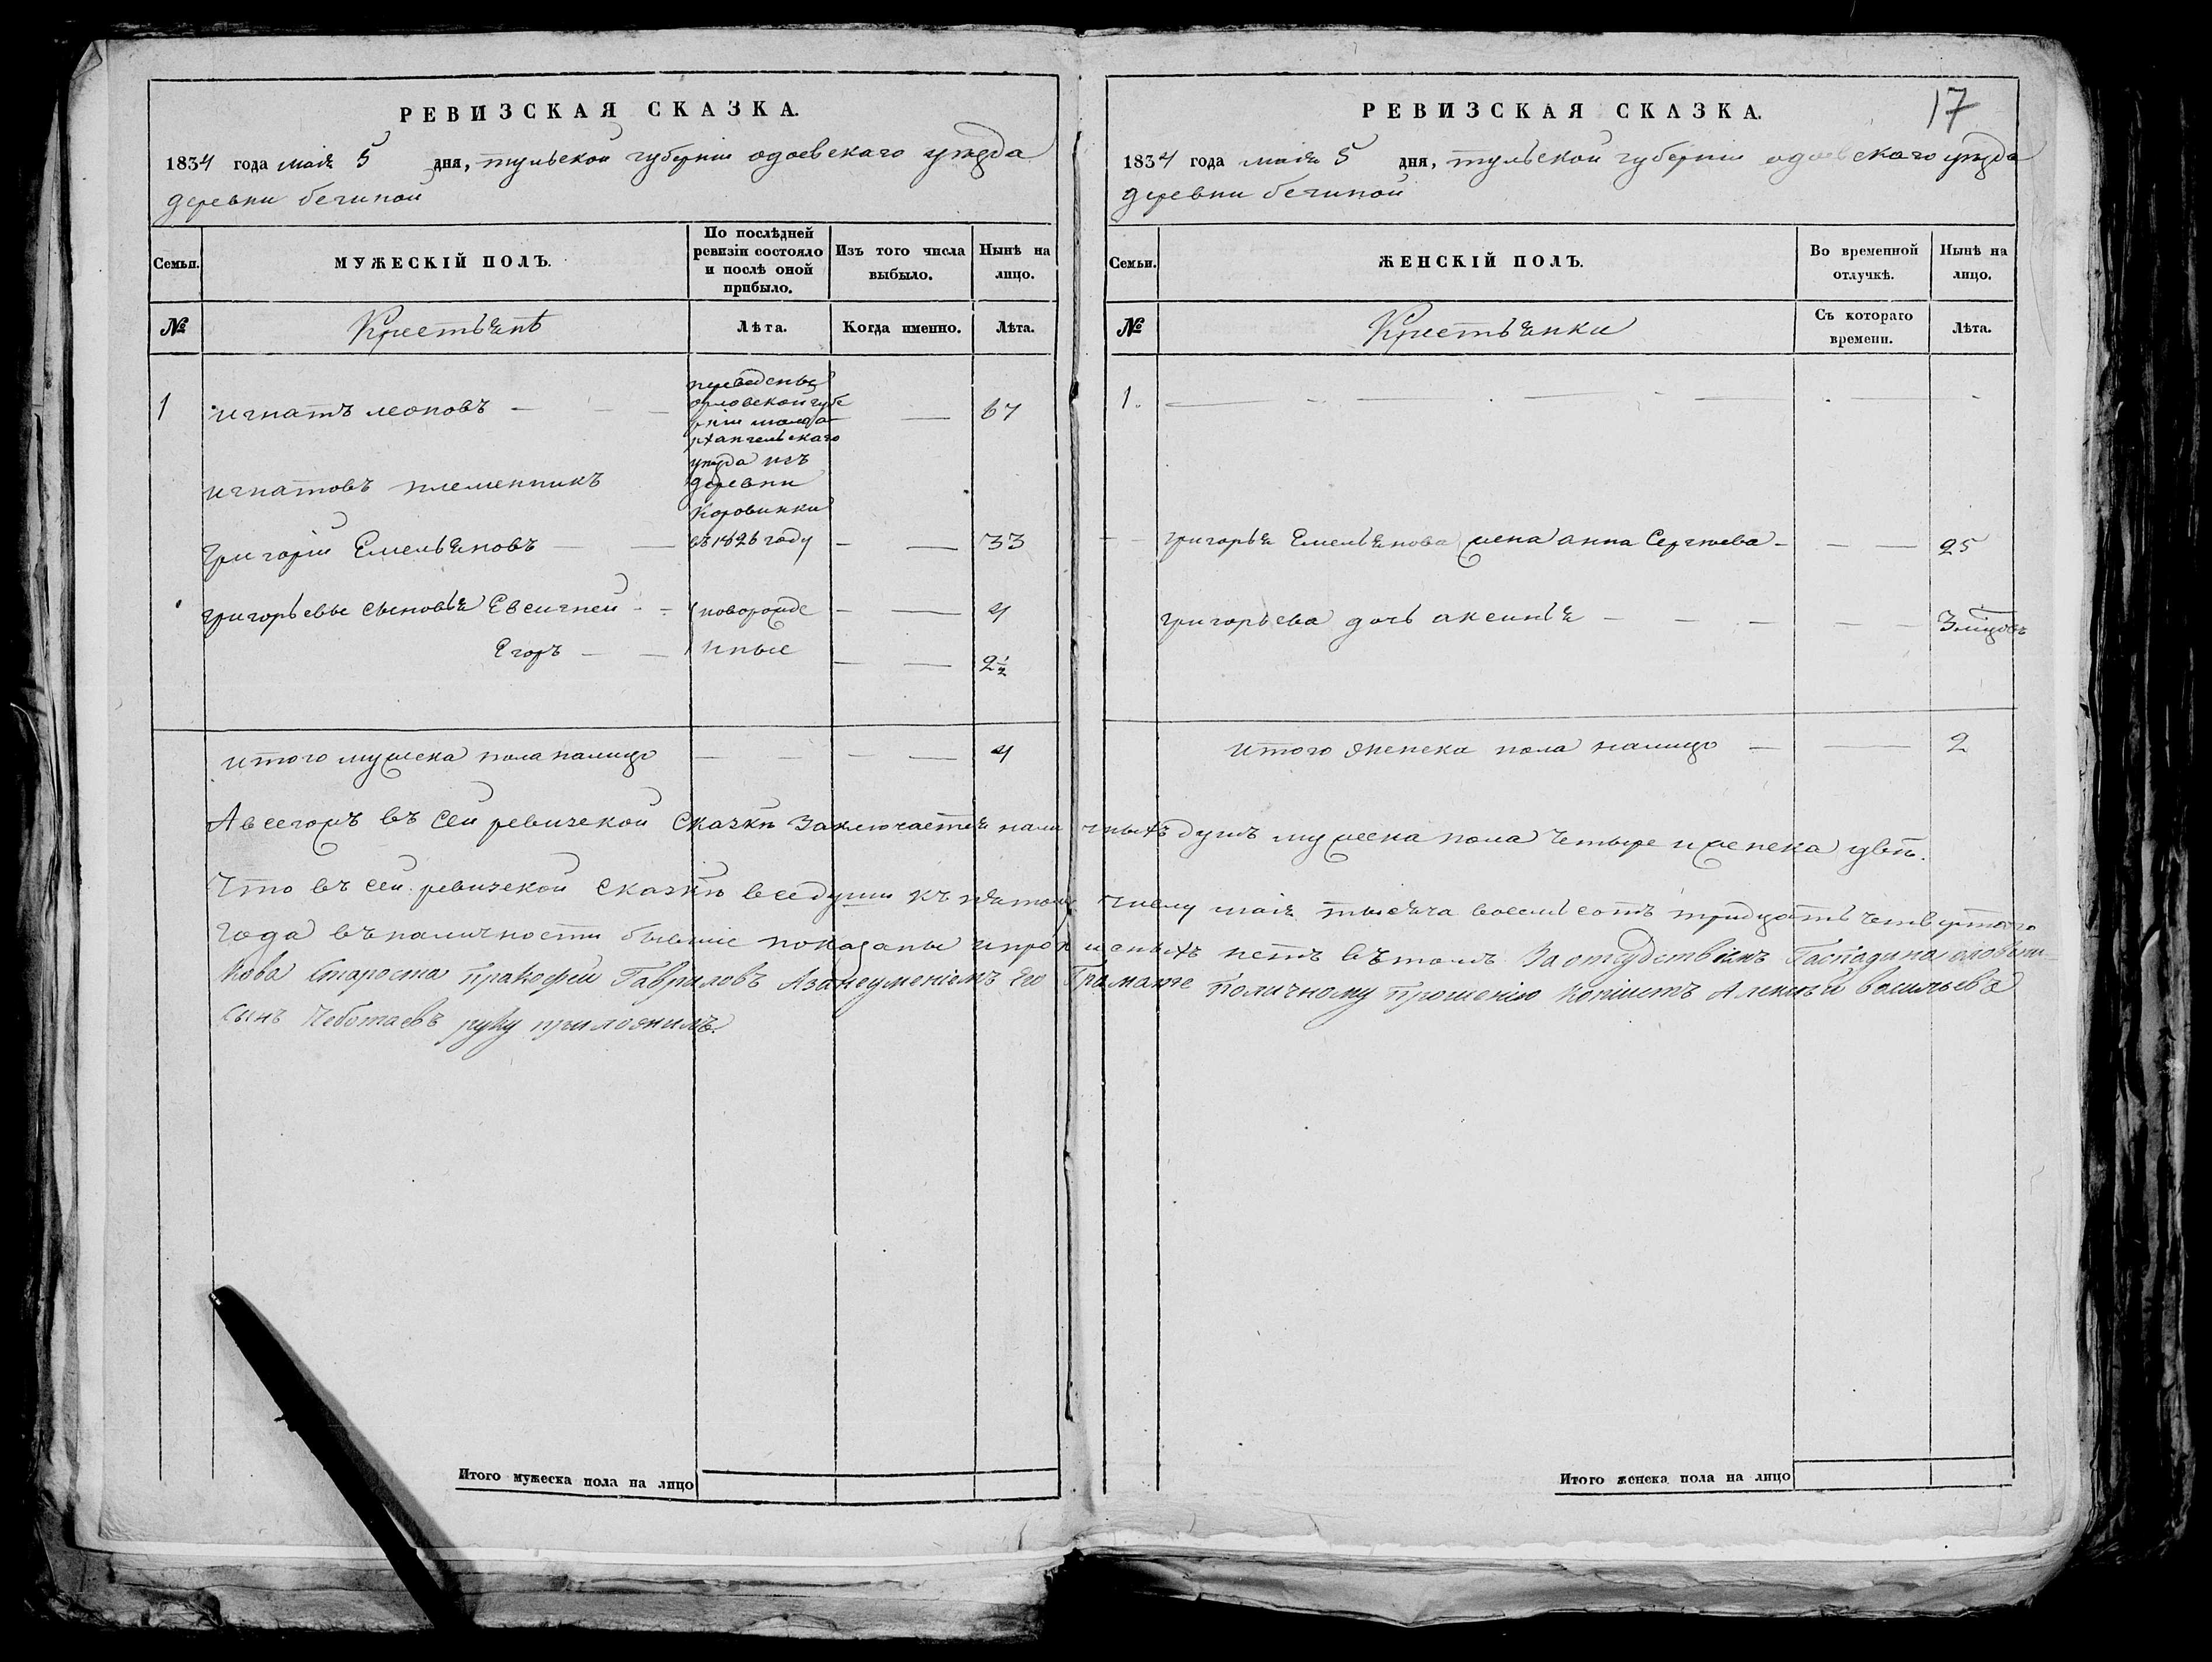 РЕВИЗСКАЯ СКАЗКА.
1834 года маія 5 дня, тульской губерніи одоевскаго уезда
деревни бегиной
Семьи.
МУЖЕСКІЙ ПОЛЪ.
По послѣдней
ревизіи состояло
и послѣ оной
прибыло.
Изъ того числа
выбыло.
Нынѣ на
лицо.
№
Крестьянѣ
Лѣта.
Когда именно.
Лѣта.
1 игнатъ леоновъ — — — 67
переведены
орловской губе
рніи малоа
рхангельскаго
уезда изъ
деревни
Коровинки
въ 1826 году
игнатовъ племенникъ
григорій Емельяновъ — — — — 33
григорьевы сыновья Евсигней — — новорожде — — 4
Егоръ — — нные — — 2½
итого мужеска пола налицо — — — — 4
РЕВИЗСКАЯ СКАЗКА.
17
1834 года маія 5 дня, тульской губерніи одоевскаго уезда
деревни бегиной
Семьи.
ЖЕНСКІЙ ПОЛЪ.
Во временной
отлучкѣ.
Нынѣ на
лицо.
№
Крестьянки
Съ котораго
времени.
Лѣта.
1.
григорья Емельянова жена анна Сергѣева — — — 25
григорьева дочь аксинья — — — — — 3 мѣцовъ
итого женска пола налицо — — 2
А всегожъ въ сей ревизской Сказкѣ Заключается наличныхъ душъ мужеска пола четыре и женска двѣ.
Что въ сей ревизской Сказкѣ все души къ пятому числу маія тысяча восемьсотъ тридцать четвертого
года въ наличности бывшіе показаны и прописныхъ нетъ въ томъ За отсудствіемъ Гаспадина
Кова Староста пракофей Гавриловъ А за неуменіемъ Его Грамате поличному Прошенію Копіистъ Алексѣй васильевъ
сынъ Чеботаевъ руку приложилъ.
Итого мужеска пола на лицо
Итого женска пола на лицо